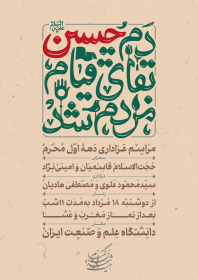 دم حسین
بقای قیام
مردم شد
مراسم عزاداری دههٔ اول محرم
حجت‌الاسلام قاسمیان و امینی‌نژاد
سیدمحمود علوی و مصطفی هادیان
از دوشنبه ۱۸ مرداد به‌مدت ۱۱ شب
بعد از نماز مغرب و عشا
دانشگاه علم و صنعت ایران